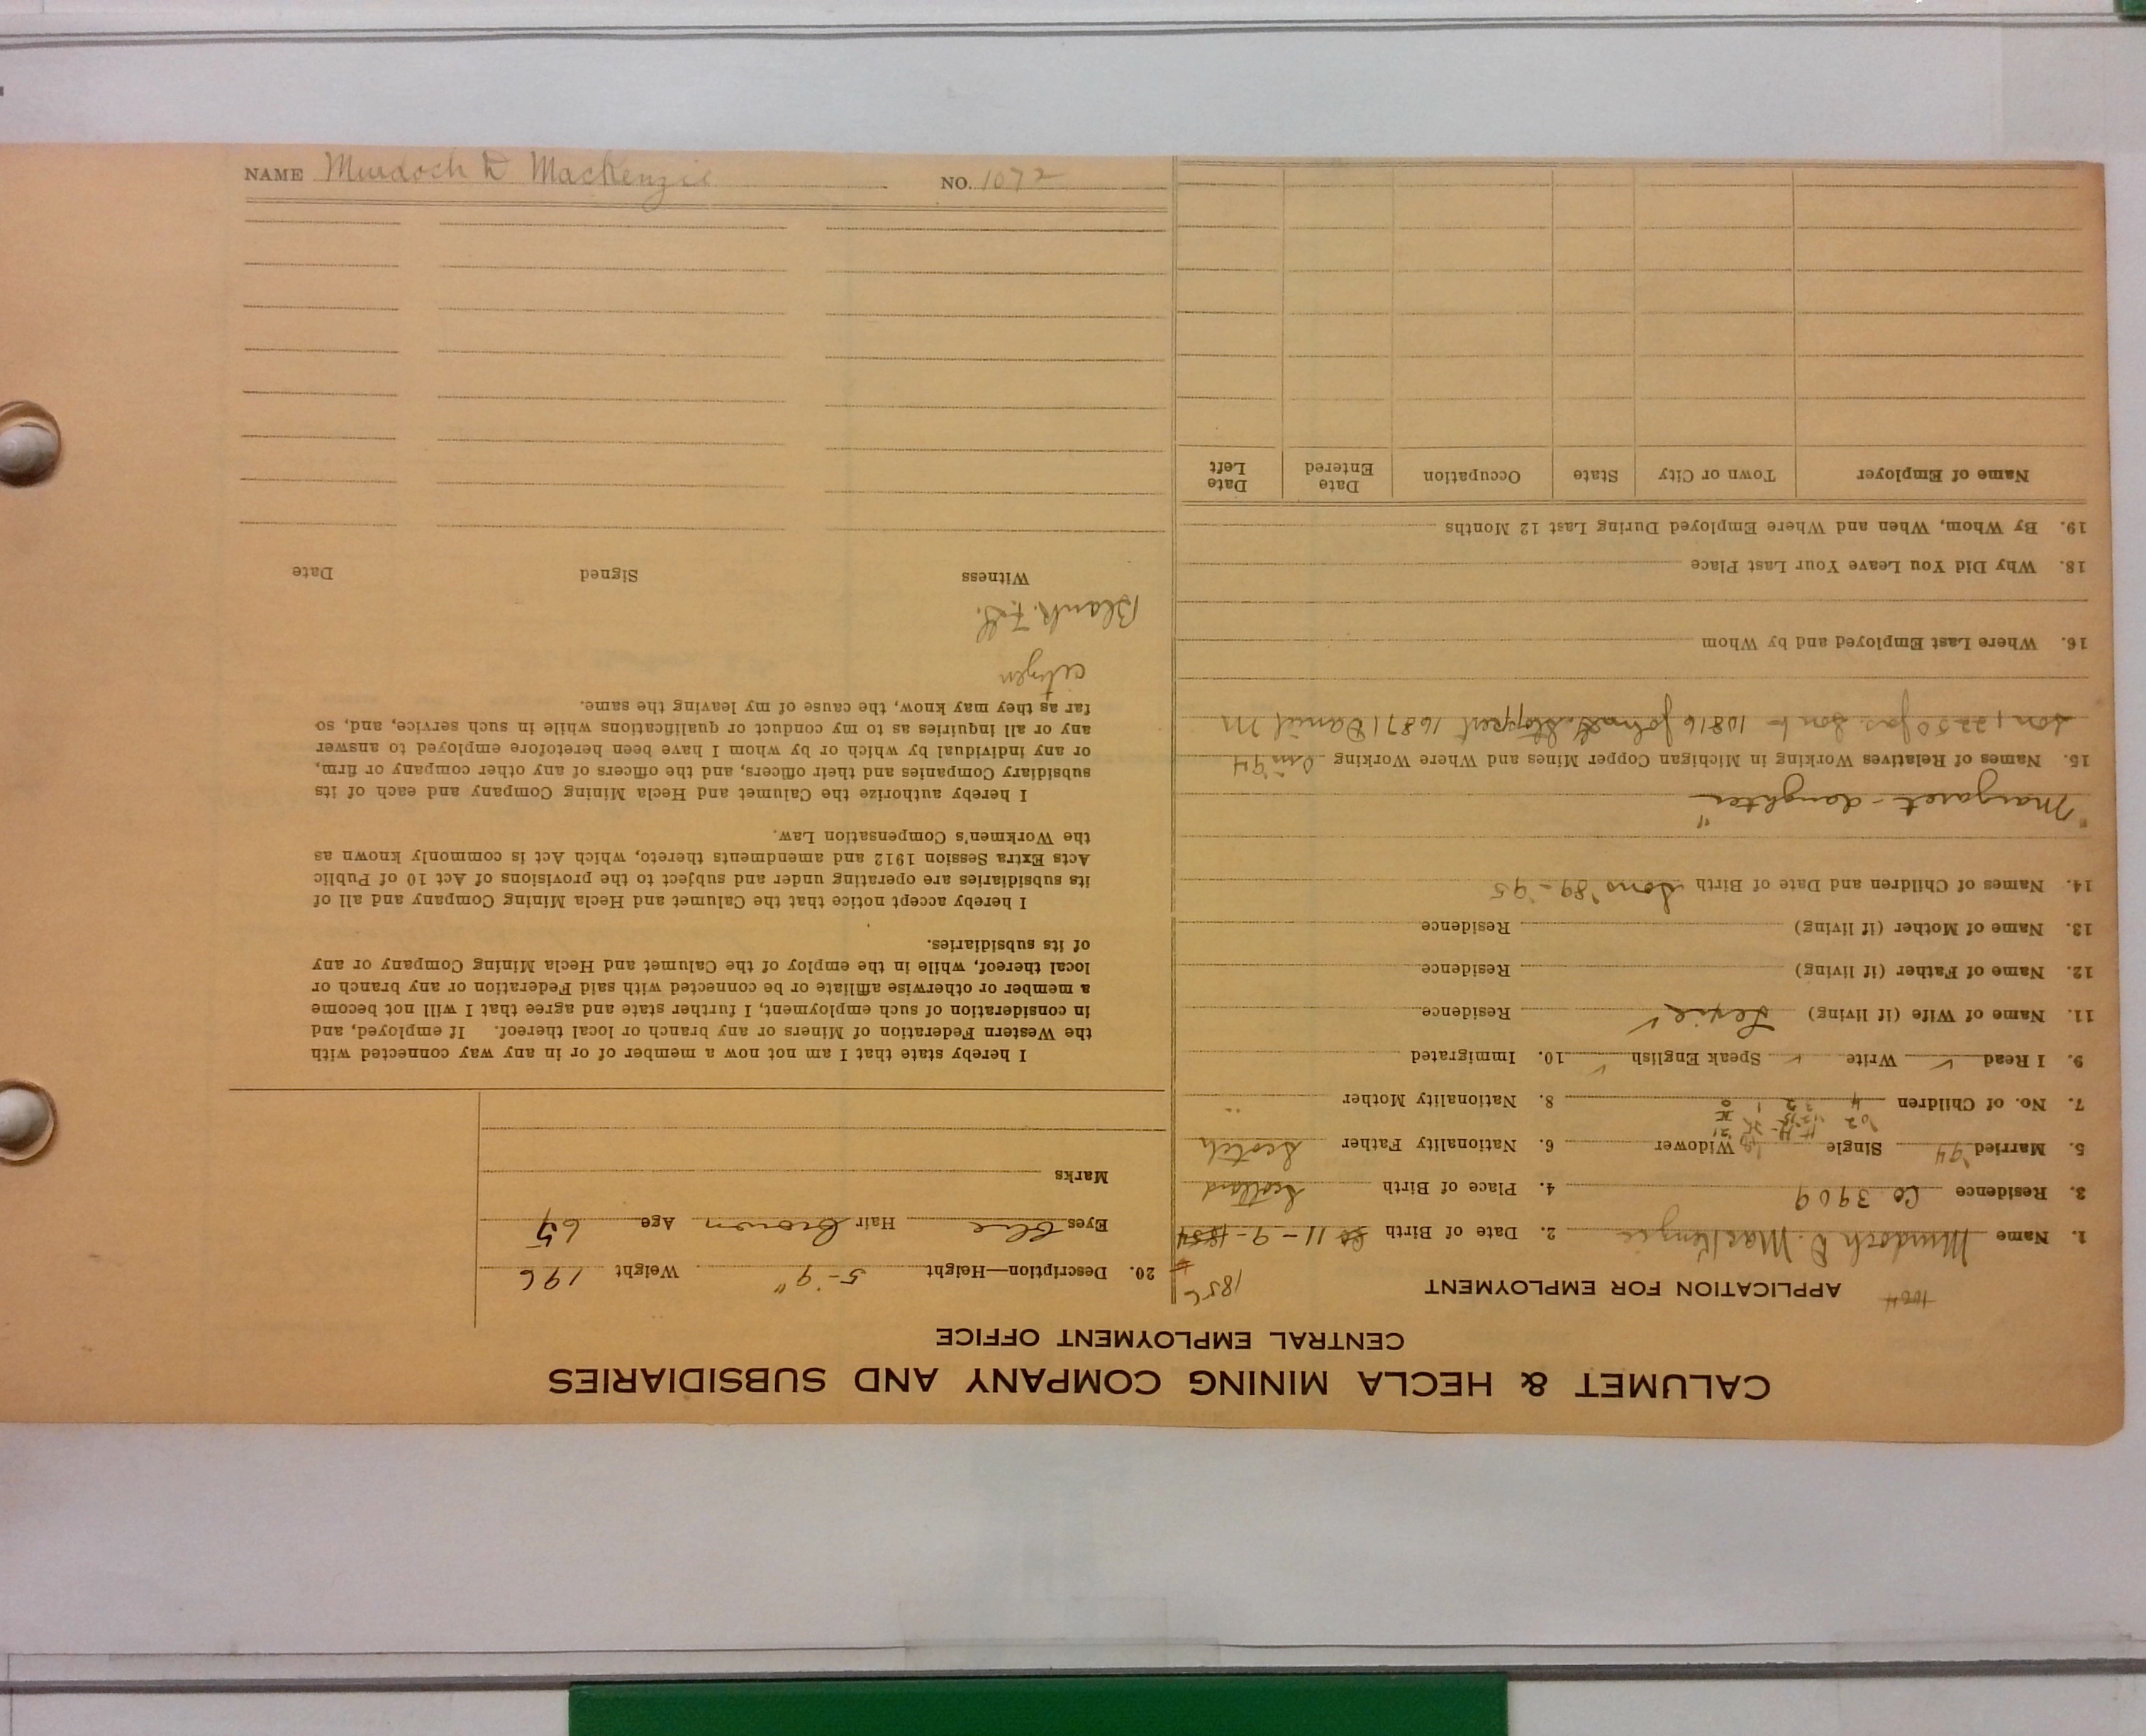 CALUMET & HECLA MINING COMPANY AND SUBSIDIARIES
CENTRAL EMPLOYMENT OFFICE
1064
APPLICATION FOR EMPLOYMENT
1856
1. Name Murdoch D. MacKenzie 2. Date of Birth 11-9-1854
3. Residence Co 3909 4. Place of Birth Scotland
5. Married '94 Single Widower 6. Nationality Father Scotch
7. No. of Children 4 8. Nationality Mother "
9. I Read ✓ Write ✓ Speak English ✓ 10. Immigrated
11. Name of Wife (if living) Lexie ✓ Residence
12. Name of Father (if living) Residence
13. Name of Mother (if living) Residence
14. Names of Children and Date of Birth Sons '89-'95
" "
Margaret - daughter
15. Names of Relatives Working in Michigan Copper Mines and Where Working
son, 2250 Jas. Son 10816 John 16871 Daniel M
16. Where Last Employed and by Whom
18. Why Did You Leave Your Last Place
19. By Whom, When and Where Employed During Last 12 Months
Name of Employer Town or City State Occupation Date Entered Date Left
20. Description—Height 5-9" Weight 196
Eyes blue Hair brown Age 65
Marks
I hereby state that I am not now a member of or in any way connected with
the Western Federation of Miners or any branch or local thereof. If employed, and
in consideration of such employment, I further state and agree that I will not become
a member or otherwise affiliate or be connected with said Federation or any branch or
local thereof, while in the employ of the Calumet and Hecla Mining Company or any
of its subsidiaries.
I hereby accept notice that the Calumet and Hecla Mining Company and all of
its subsidiaries are operating under and subject to the provisions of Act 10 of Public
Acts Extra Session 1912 and amendments thereto, which Act is commonly known as
the Workmen's Compensation Law.
I hereby authorize the Calumet and Hecla Mining Company and each of its
subsidiary Companies and their officers, and the officers of any other company or firm,
or any individual by which or by whom I have been heretofore employed to answer
any or all inquiries as to my conduct or qualifications while in such service, and, so
far as they may know, the cause of my leaving the same.
citizen
Blank.
Witness Signed Date
NAME Murdoch D MacKenzie NO. 1072